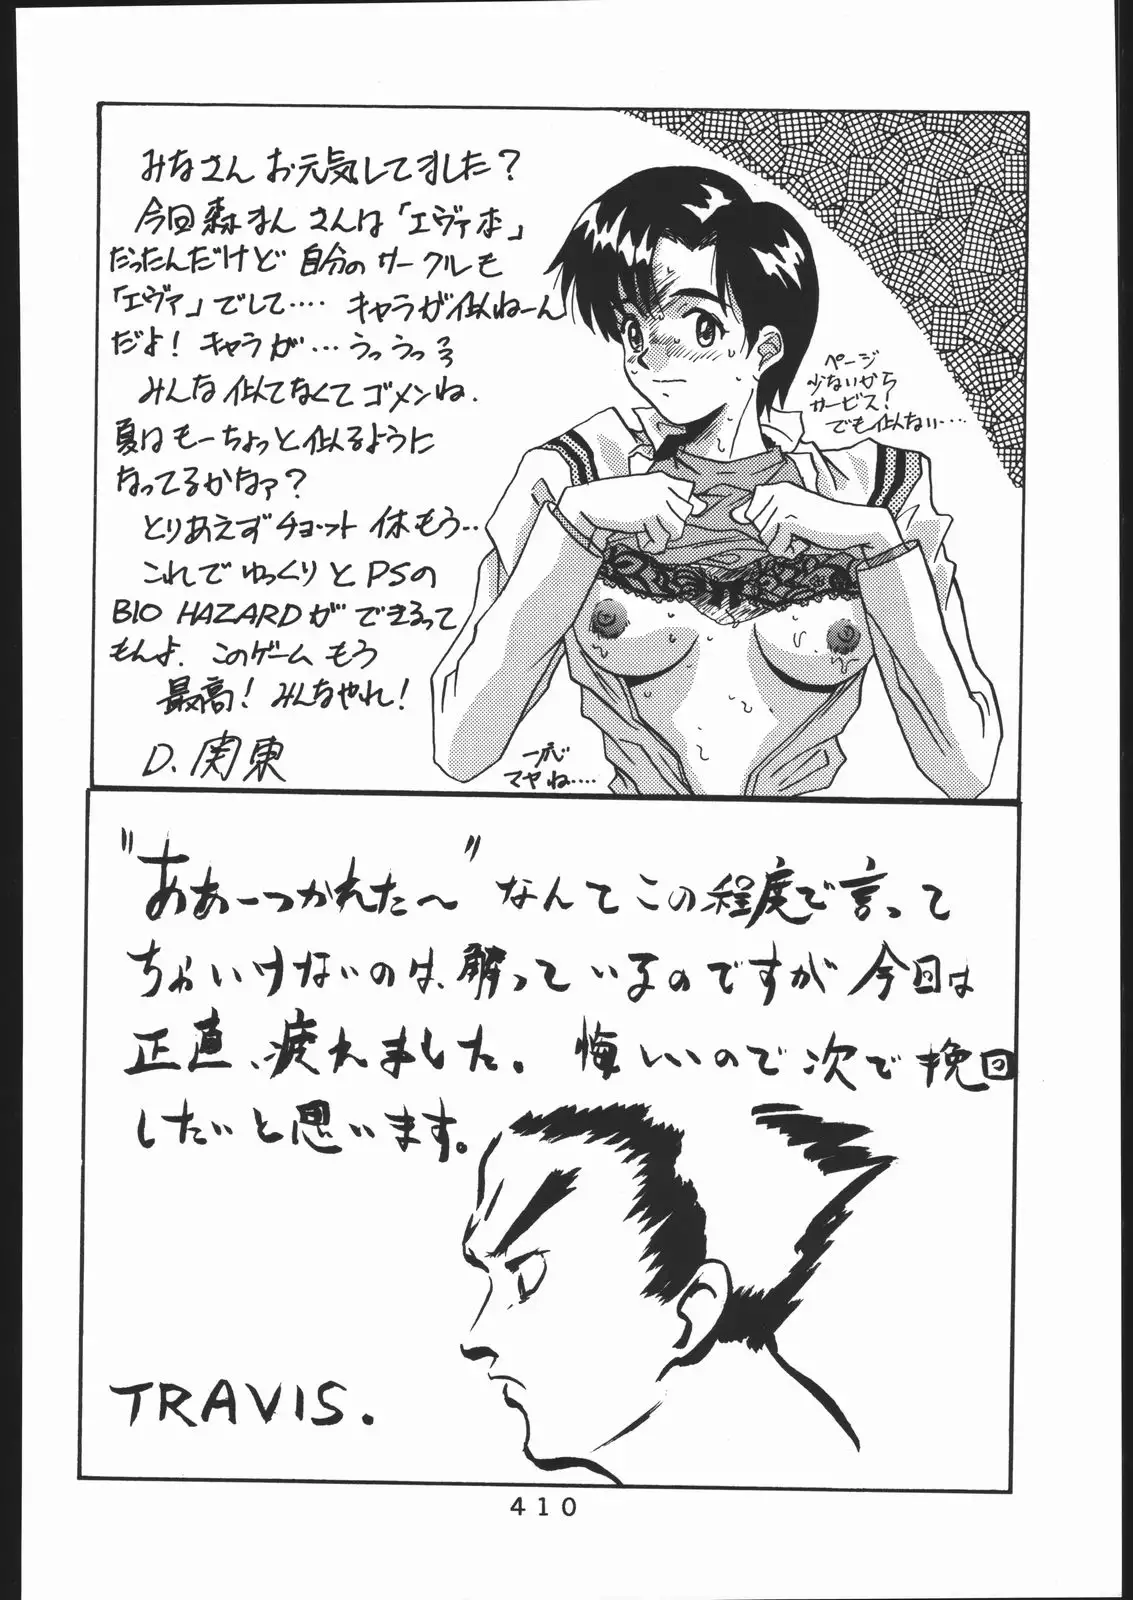 みなさん お元気してました？
今回森まん さんは「エヴァ本」
だったんだけど 自分のサークルも
「エヴァ」でして‥‥ キャラが似ねーん
だよ！キャラが…うっうっ
みんな似てなくてゴメンね.
夏はもーちょっと似るように
なってるかなァ？
とりあえずチョット 休もう‥
これでゆっくりとPSの
BIO HAZARDができるって
もんよ. このゲーム もう
最高！みんなやれ！
D. 関東
ページ
少ないから
サービス！
でも似ない‥‥
一応
マヤね‥‥
"ああーつかれた〜"なんてこの程度で言って
ちゃいけないのは、解っているのですが今回は
正直、疲れました。悔しいので次で挽回
したいと思います。
TRAVIS.
410